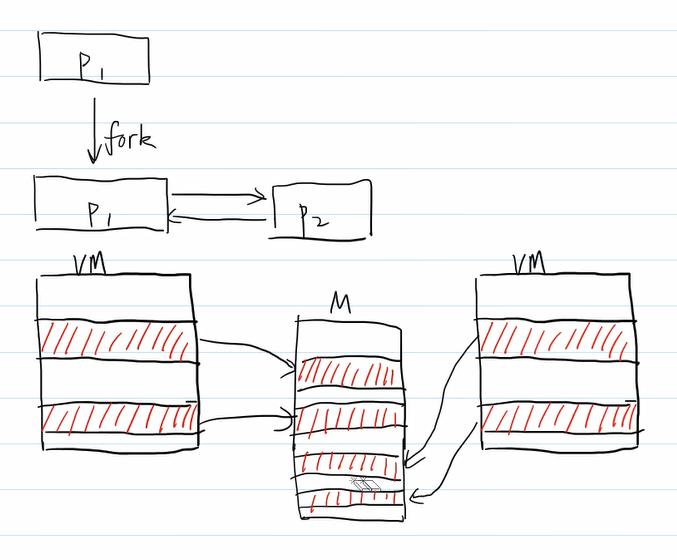 P1
fork
P1
P2
VM
M
VM